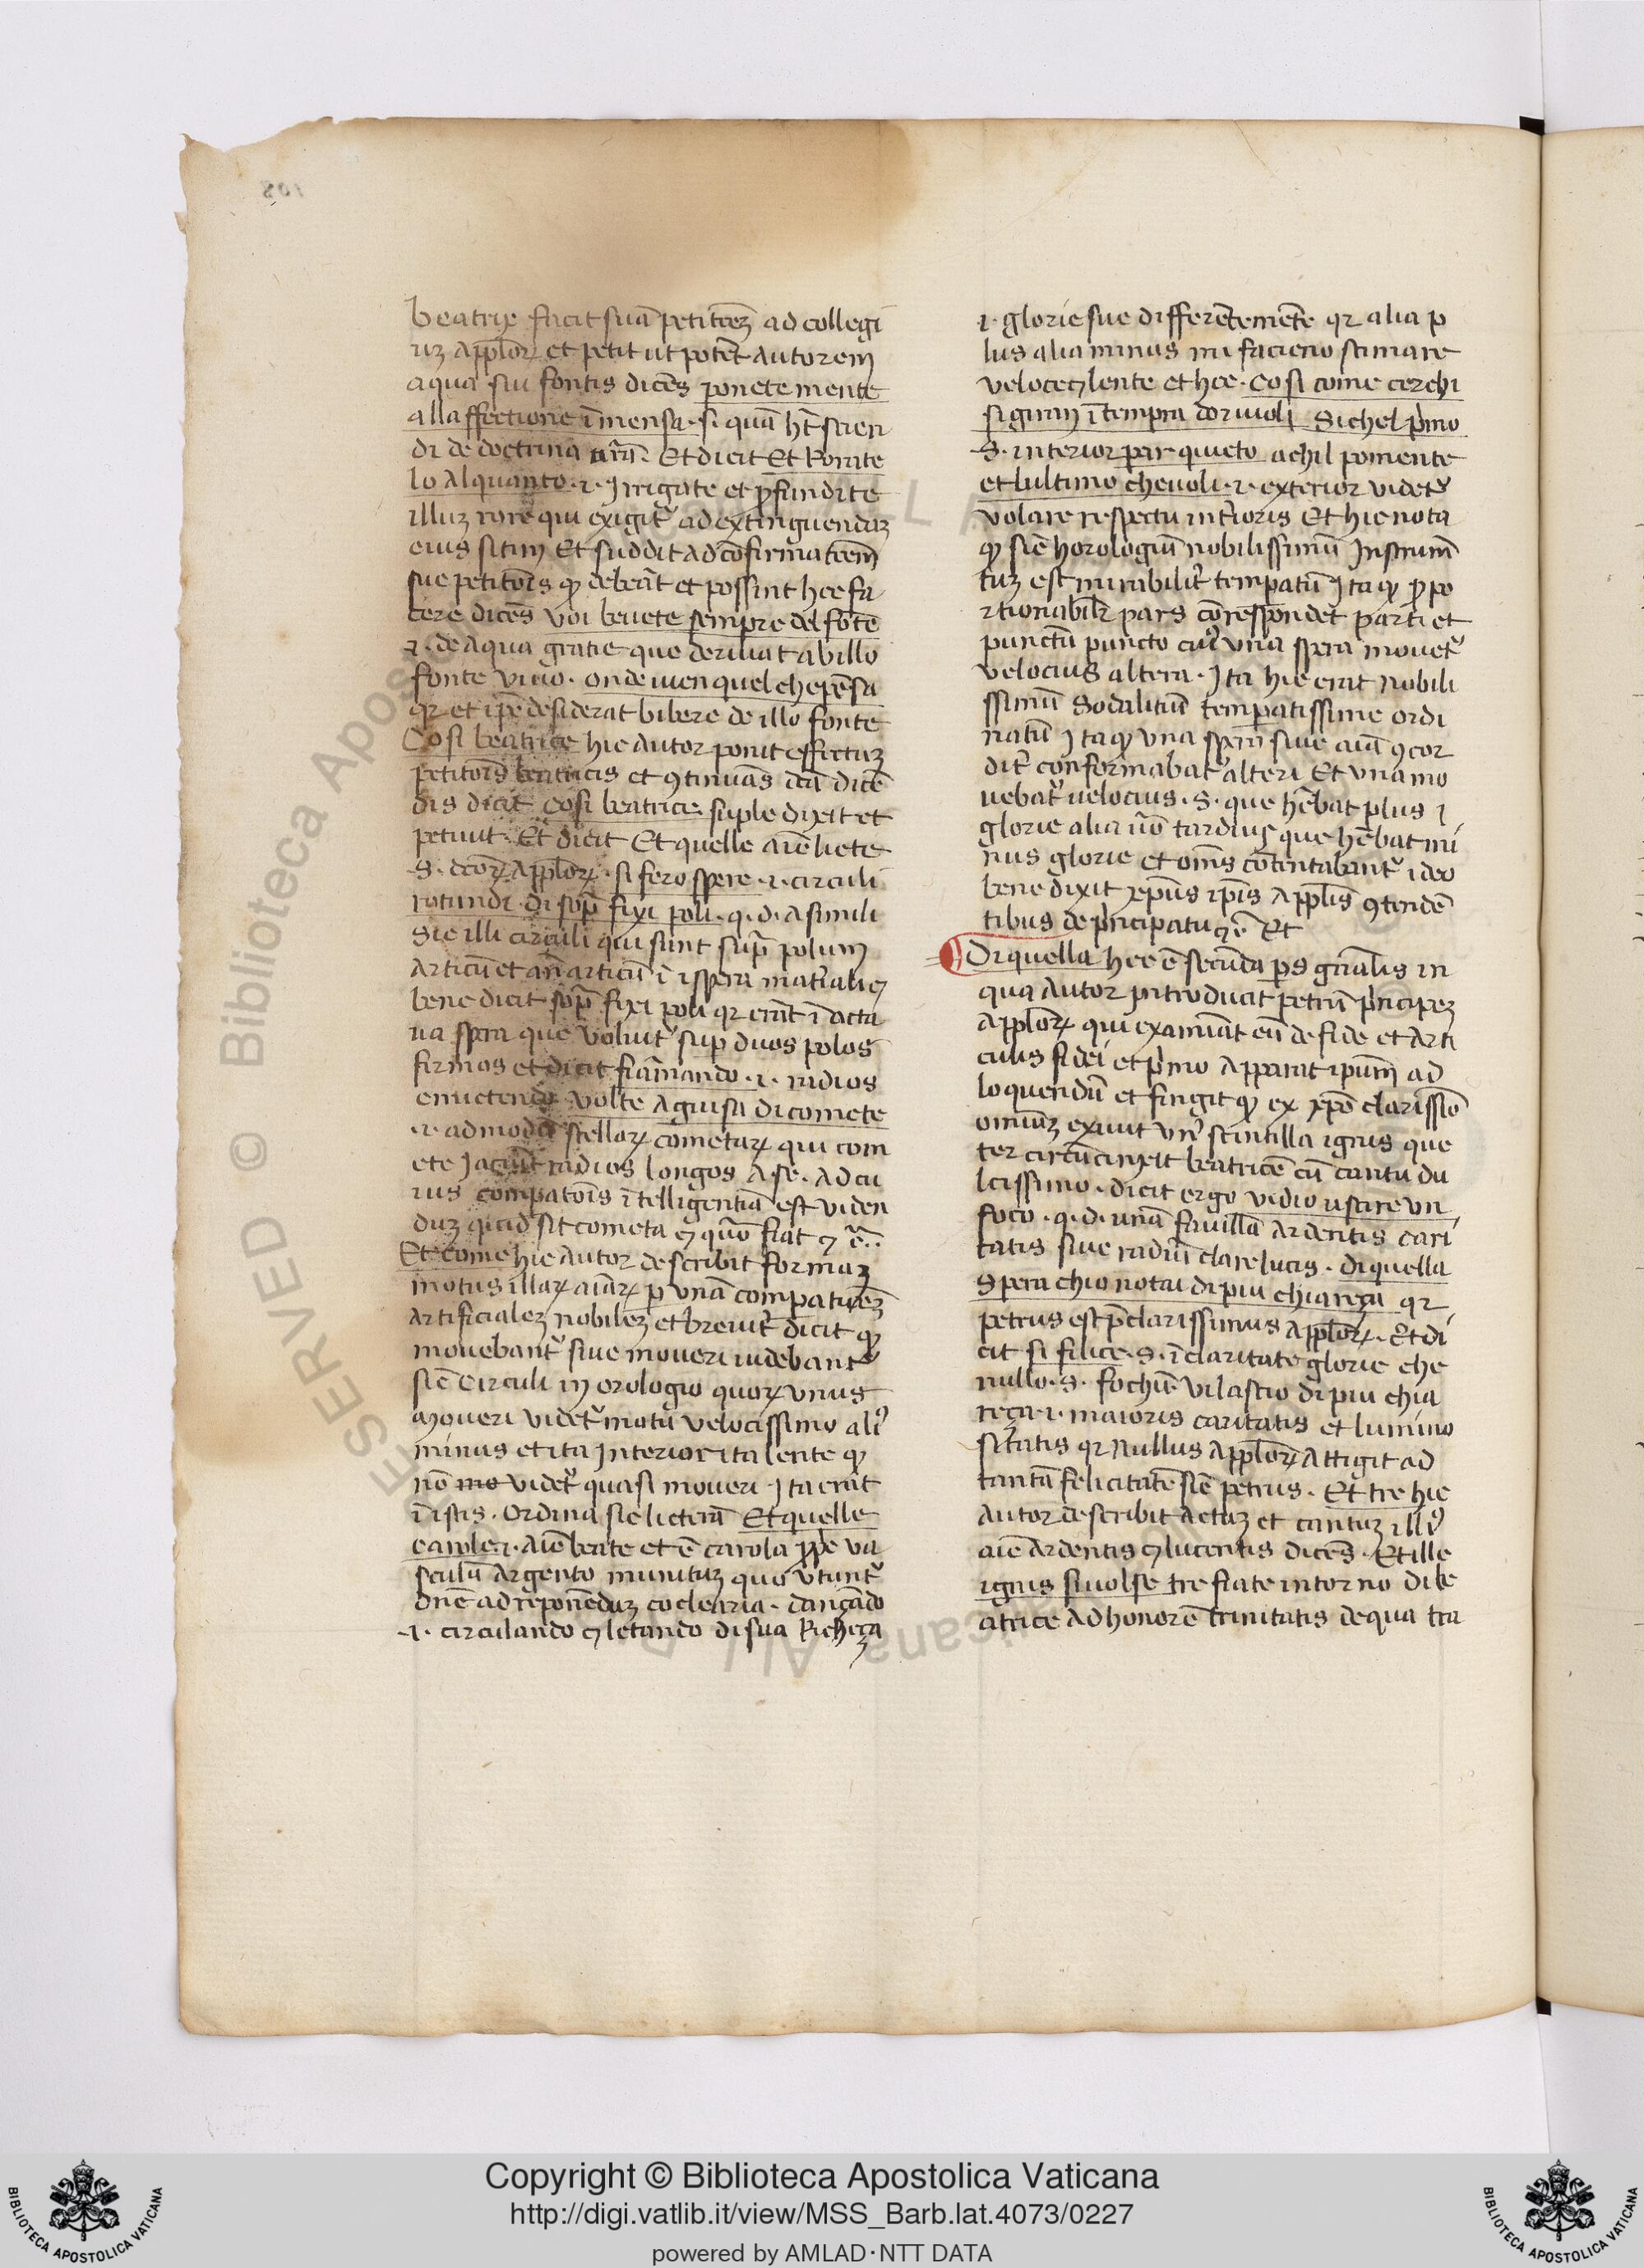 beatrix facit suā petitōeʒ ad collegi
uʒ applōꝝ et petit ut potēt autorem
aqua sui fontis dicēs ponete mente
alla ffectione īmensa .s. quā hт̄ scien
di de doctrina nrā. Et dicit Et Rorate
lo alquanto .i. Irrigate et ꝓfundite
illuʒ rore qui exigitᷣ ad extinguendaʒ
eius sitim Et suddit ad cōfirmatōem
sue petitōis ꝙ debeāt et possint hec fa
cere dicēs voi beuete sempre del fōte
.i. de aqua gratie que deriuat ab illo
fonte viuo . onde uien quel che pēsa
qꝛ et ipē desiderat bibere de illo fonte
Cosi beatrice hic autor ponit effectuʒ
petitōis beatricis et ꝯtinuās dicē
dis dicit cosi beatrice suple dixit et
petiuit. Et dicit Et quelle aīe liete
.S. applōꝝ . si fero spere .i. circuli
rotundi . di sop̄ fixi poli . q. d. a simili
Sic illi circuli qui sunt sup̄ polum
articū et anārticū ī ispera mat̄iali ⁊
bene dicit sop̄ fixi poli qꝛ erāt ī octa
ua spera que voluitᷣ sup duos polos
firmos et dicit fiāmando .i. radios
emictendo volte aguisa di comete
.i. ad modū stellaꝝ cometaꝝ qui com
ete Jaciūt radios longos a se . ad cu
ius compatōis ītelligentiā est viden
duʒ quid sit cometa ⁊ quō fiat ⁊ c̄.
Et come hic autor describit formaʒ
motus illaꝝ aīaꝝ p vnā compatōeʒ
artificialeʒ nobileʒ et breuit̄ dicit ꝙ
mouebantᷣ siue moueri uidebantᷣ
sic̄ Circuli in orologio quoꝝ vnus
moueri videtᷣ motu velocissimo aliꝰ
minus et ita Interior ita lente ꝙ
nō mo videtᷣ quasi moueri . Ita erāt
ī istis . Ordina sic licterā Et quelle
carole .i. aīe beate et ē carola ꝓpe va
sculū argento munituʒ quo vtuntᷣ
dn̄e ad reponēduʒ coclearia . dançādo
.i. circulando ⁊ letando di sua Richeça
.i. glorie sue differētemēte qꝛ alia p
lus alia minus mi facieno stimare
veloce ⁊ lente et hec . Cosi come cerchi
si giran ī tempra doriuoli Sichel pͥmo
.S. interior par quieto achil ponmente
et lultimo che uoli .i. exterior videtᷣ
volare respectu int̄ioris Et hic nota
ꝙ sic̄ horologiū nobilissimū Instrum̄
tuʒ est mirabilit̄ tempatū Ita ꝙ ꝓpo
rtionabilr̄ pars cōrespondet parti et
punctū puncto cuiꝰ vna spera mouetᷣ
velocius altera . Ita hic erat nobili
ssimū Sodalitiū tempatissime ordi
natū Ita ꝙ vna spera siue aīa ꝯcor
dit̄ conformabatᷣ alteri Et vna mo
uebatᷣ uelocius .S. que hēbat plus ī
glorie alia uō tardius que hēbat mi
nus glorie et om̄s cōtentabantᷣ ideo
bene dixit xp̄us ip̄is applīs ꝯtendē
tibus de pͥncipatu Et
Di quella hec ē secunda ps gnāalis in
qua autor introducit petrū pͥncipeʒ
applōꝝ qui examināt eū de fide et arti
culis fidei et pͥmo apparat ipum̄ ad
loquendū et fingit ꝙ ex xp̄o clarissīo
omniuʒ exiuit vnͣ scintilla ignis que
ter circūcinxit beatricē cū cantu du
lcissimo . dicit ergo vidio uscire vn
foco . q. d. unā fauillā ardentis cari
tatis siue radiū clare lucis . di quella
Spera chio notai di piu chiareça qꝛ
petrus est p̄clarissimus applōꝝ . Et di
cit si filice .S. ī claritate glorie che
nullo .S. fochū. vi lascio di piu chia
reça .i. maioris caritatis et lumino
sitatis qꝛ nullus applōꝝ attigit ad
tantā felicitatē sic̄ petrus . Et tre hic
autor describit actuʒ et cantuʒ illiꝰ
aīe ardentis ⁊ lucentis dicēs . Et ille
ignis siuolse tre fiate intorno di be
atrice ad honorē trinitatis de qua tra
Copyright © Biblioteca Apostolica Vaticana
http://digi.vatlib.it/view/MSS_Barb.lat.4073/0227
powered by AMLAD·NTT DATA
BIBLIOTECA APOSTOLICA VATICANA
BIBLIOTECA APOSTOLICA VATICANA